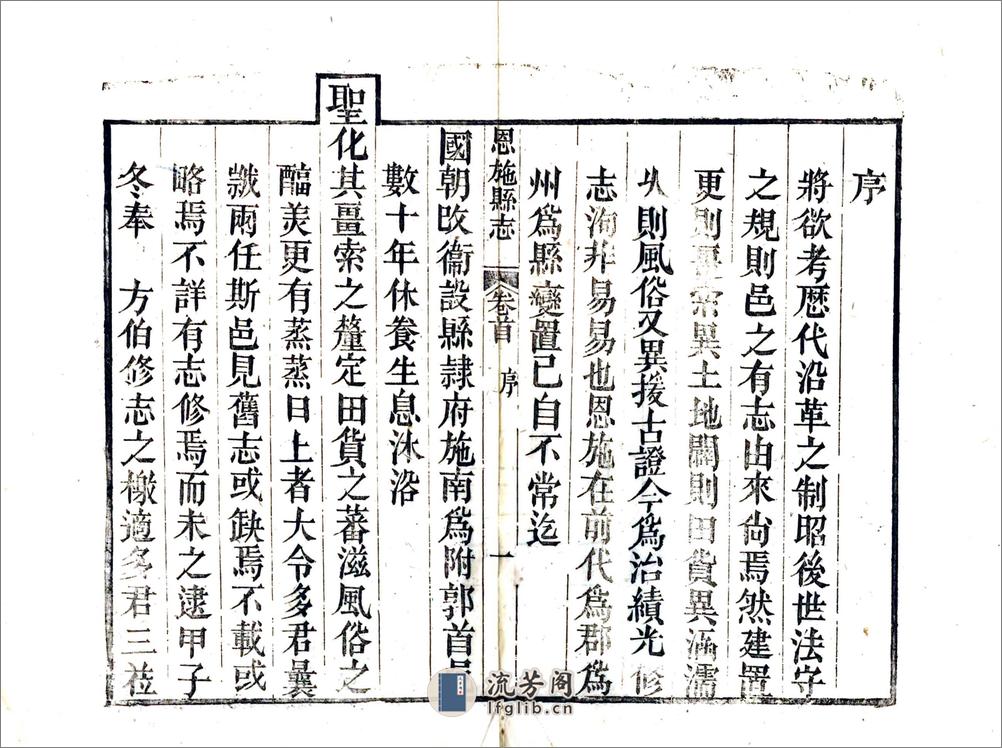 序
將欲考歷代沿革之制昭後世法守
之規則邑之有志由來尙焉然建置
更則畺索異土地闢則田貨異涵濡
久則風俗又異援古證今爲治績光修
志洵非易易也恩施在前代爲郡爲
州爲縣變置已自不常迄
恩施縣志 卷首 序 一
國朝改衞設縣隸府施南爲附郭首邑
數十年休養生息沐浴
聖化其畺索之釐定田貨之蕃滋風俗之
醲美更有蒸蒸日上者大令多君曩
嵗兩任斯邑見舊志或缺焉不載或
略焉不詳有志修焉而未之逮甲子
冬奉 方伯修志之檄適多君三蒞
流芳阁
lfglib.cn